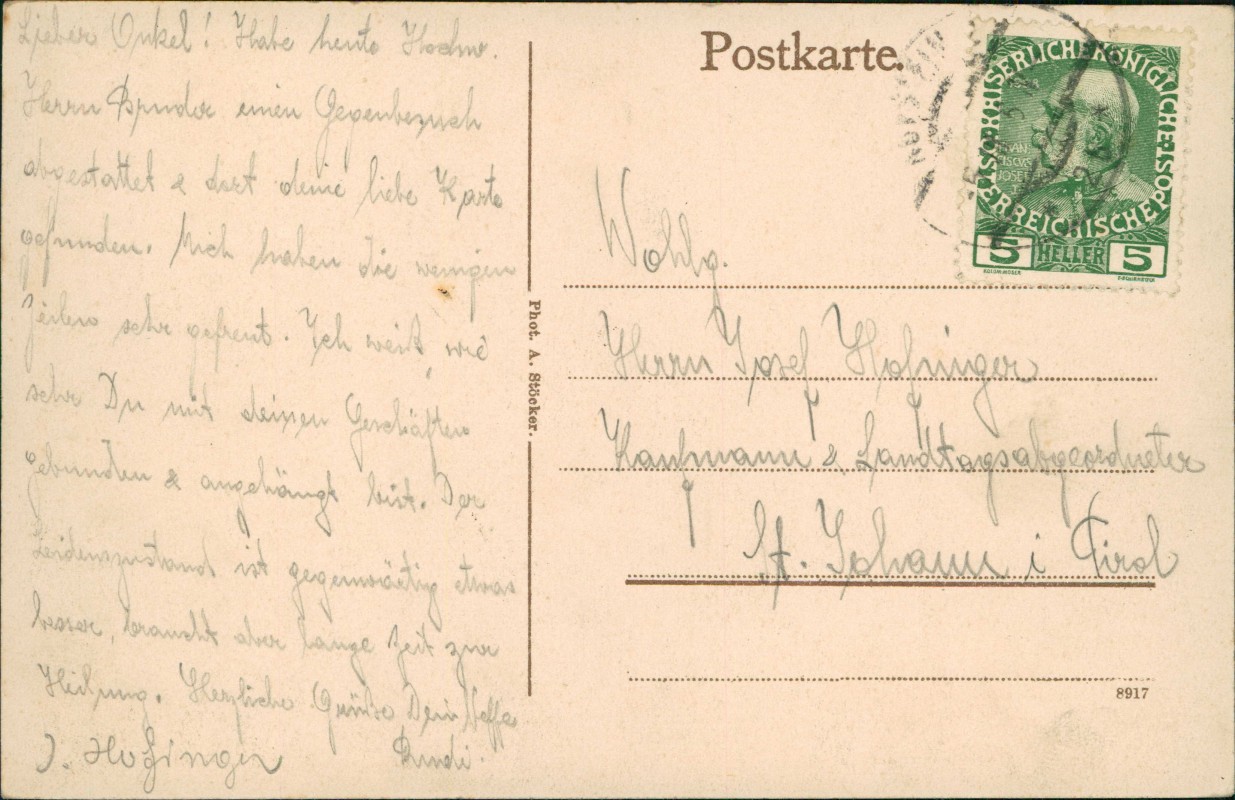 Lieber Onkel! Habe heute Hochw.
Herrn Bruder einen Gegenbesuch
abgestattet & dort deine liebe Karte
gefunden. Mich haben die wenigen
Zeilen sehr gefreut. Ich weiß, wie
sehr Du mit deinen Geschäften
gebunden & angehängt bist. Der
Leidenszustand ist gegenwärtig etwas
besser, braucht aber lange Zeit zur
Heilung. Herzliche Grüße Dein Neffe
J. Hofinger Rudi.
Phot. A. Stöcker.
Postkarte.
KAISERLICHE KÖNIGLICHE
ÖSTERREICHISCHE POST
FRAN
CISCVS
JOSEF
I
5 HELLER 5
Wohlg.
Herrn Josef Hofinger
Kaufmann & Landtagsabgeordneter
St. Johann i Tirol
8917